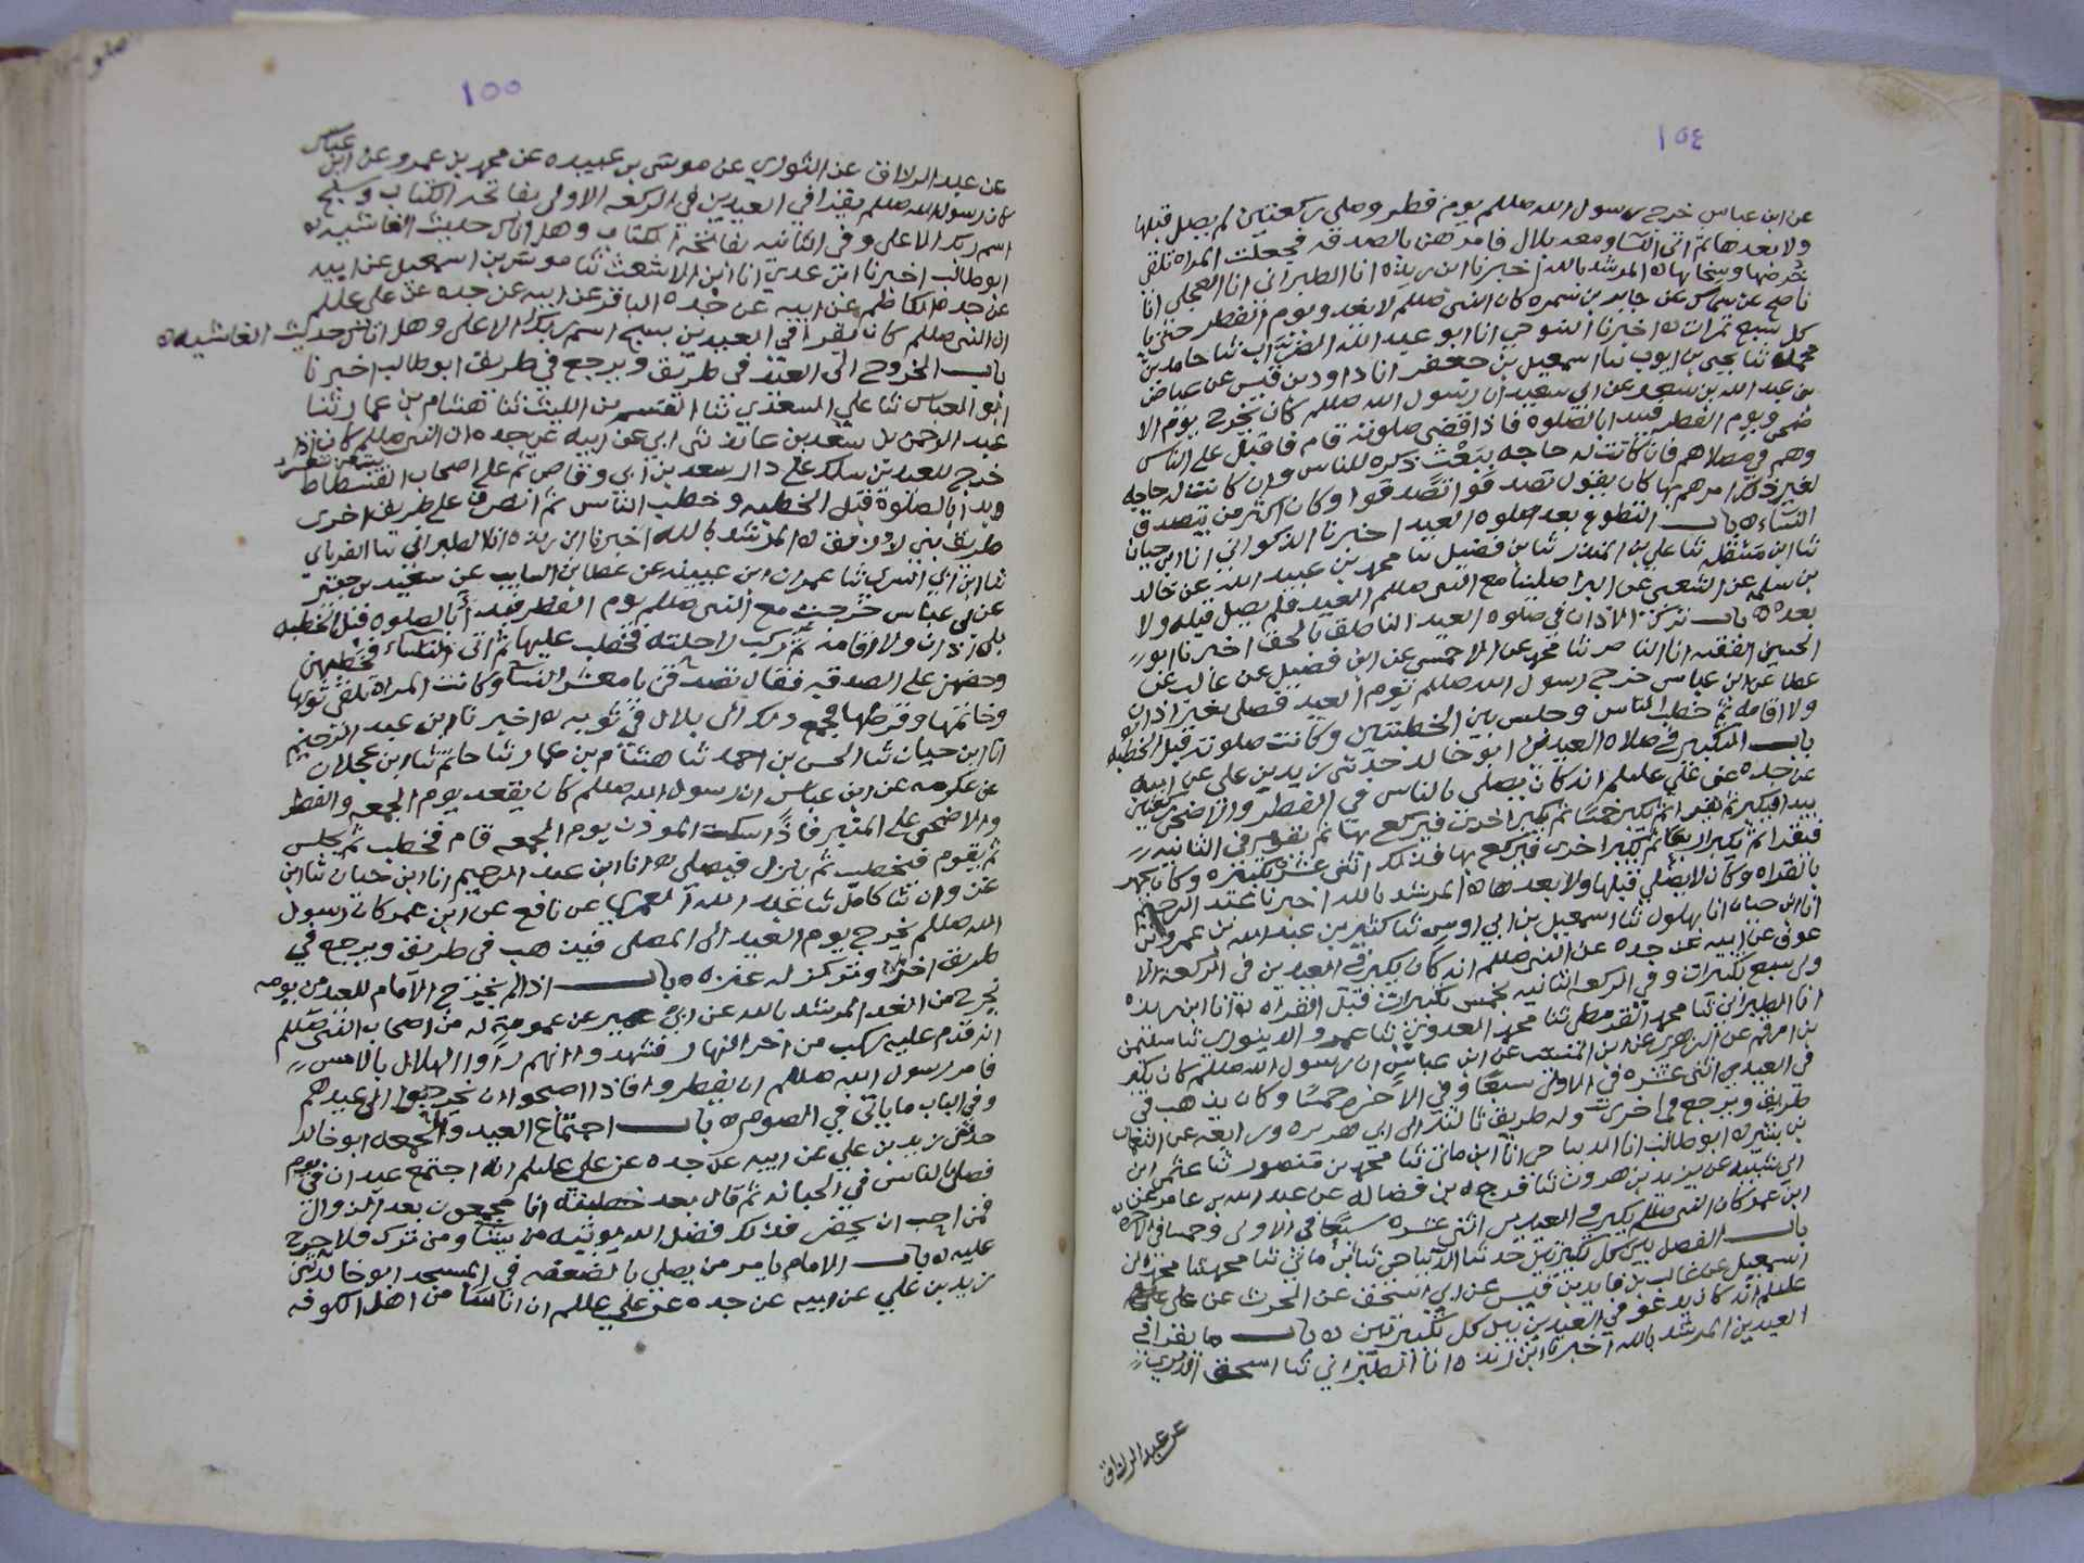 ١٥٤
عن ابن عباس خرج رسول الله صللم يوم فطر وصلى ركعتين لم يصل قبلها
ولا بعدها ثم اتى النسا ومعه بلال فامرهن بالصدقه فجعلت المراه تلقي
خرصها وسخابها ه المرشد بالله اخبرنا ابن ريذه انا الطبراني انا العجلي انا
ناصح عن سماك عن جابر بن سمره كان النبي صللم لا يغدو يوم الفطر حتى يا
كل سبع تمرات ه اخبرنا التنوخي انا ابو عبد الله ثنا حامد بن
محمد ثنا يحيى بن ايوب ثنا اسمعيل بن جعفر انا داود بن قيس عن عياض
بن عبد الله بن سعد عن ابي سعيد ان رسول الله صللم كان يخرج يوم الا
ضحى ويوم الفطر فيبدا بالصلوه فاذا قضى صلوته قام فاقبل على الناس
وهم في مصلاهم فان كانت له حاجه ببعث ذكره للناس وان كانت له حاجه
لغير ذلك امرهم بها كان يقول تصدقوا تصدقوا وكان اكثر من يتصدق
النساء ه باب التطوع بعد صلوه العيد اخبرنا الذكواني انا ابن حيان
ثنا ابن مشقله ثنا علي بن المنذر ثنا بن فضيل ثنا محمد بن عبيد الله عن خالد
بن سلمه عن الشعبي عن البراء صلينا مع النبي صللم العيد فلم يصل قبله ولا
بعده ه باب ترك الاذان في صلوه العيد الناطق بالحق اخبرنا ابو
الحسين الفقيه انا الناصر ثنا محمد عن الاحمسي عن ابن فضيل عن غالب عن
عطا عن ابن عباس خرج رسول الله صللم يوم العيد فصلى بغير اذان
ولا اقامه ثم خطب الناس وجلس بين الخطبتين وكانت صلوته قبل الخطبه
باب التكبير في صلاه العيدين ابو خالد حدثني زيد بن علي عن ابيه
عن جده عن علي عليلم انه كان يصلي بالناس في الفطر والاضحى ركعتين
يبدا فيكبر ثم يقرا ثم يكبر خمسا ثم يكبر اخرى فيركع بها ثم يقوم في الثانيه
فيقرا ثم يكبر اربعا ثم يكبر اخرى فيركع بها فذلك اثنى عشره تكبيره وكان يجهر
بالقراه وكان لا يصلي قبلها ولا بعدها ه المرشد بالله اخبرنا عبد الرحيم
انا ابن حيان انا بهلول ثنا اسمعيل بن ابي اويس ثنا كثير بن عبد الله بن عمرو بن
عوف عن ابيه عن جده عن النبي صللم انه كان يكبر في العيدين في الركعه الا
ولى سبع تكبيرات وفي الركعه الثانيه خمس تكبيرات قبل القراه ه وانا ابن ريذه
انا الطبراني ثنا محمد القرمطي ثنا محمد العدوني ثنا عمرو الدينوري ثنا سليمن
بن ارقم عن الزهري عن ابن المسيب عن ابن عباس ان رسول الله صللم كان يكبر
في العيدين اثنى عشره في الاولى سبعا وفي الاخره خمسا وكان يذهب في
طريق ويرجع في اخرى وله طريق ثالثه الى ابي هريره ورابعه عن النعمان
بن بشير ه ابو طالب انا الديباجي انا ابن ماتي ثنا محمد بن منصور ثنا عثمن ابن
ابي شيبه عن يزيد بن هرون ثنا فرج بن فضاله عن عبد الله بن عامر عن
ابن عمر كان النبي صللم يكبر في العيدين اثنى عشره سبعا في الاولى وخمسا في الاخره
باب الفصل بين كل تكبيرتين حدثنا الديباجي ثنا ابن ماتي ثنا محمد ثنا محمد بن
اسمعيل عن غالب بن فايد بن قيس عن ابي اسحق عن الحرث عن علي
عليلم انه كان يدعو في العيدين بين كل تكبيرتين ه باب ما يقرا في
العيدين المرشد بالله اخبرنا ابن ريذه انا الطبراني ثنا اسحق الدبري
عن عبد الرزاق
١٥٥
عن عبد الرزاق عن الثوري عن موسى بن عبيده عن محمد بن عمرو عن ابن عباس
كان رسول الله صللم يقرا في العيدين في الركعه الاولى بفاتحه الكتاب وسبح
اسم ربك الاعلى وفي الثانيه بفاتحه الكتاب وهل اتاك حديث الغاشيه ه
ابو طالب اخبرنا ابن عدي انا ابن الاشعث ثنا موسى بن اسمعيل عن ابيه
عن جده الكاظم عن ابيه عن جده الباقر عن ابيه عن جده عن علي عللم
ان النبي صللم كان يقرا في العيدين بسبح اسم ربك الاعلى وهل اتاك حديث الغاشيه ه
باب الخروج الى العيد في طريق ويرجع في طريق ابو طالب اخبرنا
ابو العباس ثنا علي السعدي ثنا القسم بن الليث ثنا هشام بن عمار ثنا
عبد الرحمن بن سعد بن عايذ ثني ابي عن ابيه عن جده ان النبي صللم كان اذا
خرج للعيدين سلك على دار سعد بن ابي وقاص ثم على اصحاب الفسطاط
وبدا بالصلوة قبل الخطبه وخطب الناس ثم انصرف على طريق اخرى
طريق بني زريق ه المرشد بالله اخبرنا ابن ريذه انا الطبراني ثنا الفريابي
ثنا ابن ابي السري ثنا عمران ابن عيينه عن عطا بن السايب عن سعيد بن جبير
عن ابن عباس خرجت مع النبي صللم يوم الفطر فبدا بالصلوه قبل الخطبه
بلا اذان ولا اقامه ثم ركب راحلته فخطب عليها ثم اتى النساء فخطبهن
وحضهن على الصدقه فقال تصدقن يا معشر النسا وكانت المراة تلقي ثوبها
وخاتمها وقرطها فجمع ذلك الى بلال في ثوبه ه اخبرنا ابن عبد الرحيم
انا ابن حيان ثنا الحسن بن احمد ثنا هشام بن عمار ثنا حاتم ثنا ابن عجلان
عن عكرمه عن ابن عباس ان رسول الله صللم كان يقعد يوم الجمعه والفطر
والاضحى على المنبر فاذا سكت الموذن يوم الجمعه قام فخطب ثم يجلس
ثم يقوم فيخطب ثم ينزل فيصلي ه انا ابن عبد الرحيم انا ابن حيان ثنا ابن
غزوان ثنا كامل ثنا عبد الله العمري عن نافع عن ابن عمر كان رسول
الله صللم يخرج يوم العيد الى المصلى فيذهب في طريق ويرجع في
طريق اخرى وتركز له عنزه ه باب اذا لم يخرج الامام للعيد من يومه
يخرج من الغد المرشد بالله عن ابي عمير عن عمومة له من اصحاب النبي صللم
انه قدم عليه ركب من اخر النهار فشهدوا انهم راوا الهلال بالامس
فامر رسول الله صللم ان يفطروا فاذا اصبحوا ان يخرجوا الى عيدهم
وفي الباب ما ياتي في الصوم ه باب اجتماع العيد والجمعه ابو خالد
حدثني زيد بن علي عن ابيه عن جده عن علي عليلم انه اجتمع عيدان في يوم
فصلى بالناس في الجبانه ثم قال بعد خطبته انا مجمعون بعد الزوال
فمن احب ان يحضر فذلك فضل الله يوتيه من يشا ومن ترك فلا حرج
عليه ه باب الامام يامر من يصلي بالضعفه في المسجد ابو خالد ثني
زيد بن علي عن ابيه عن جده عن علي عللم ان اناسا من اهل الكوفه